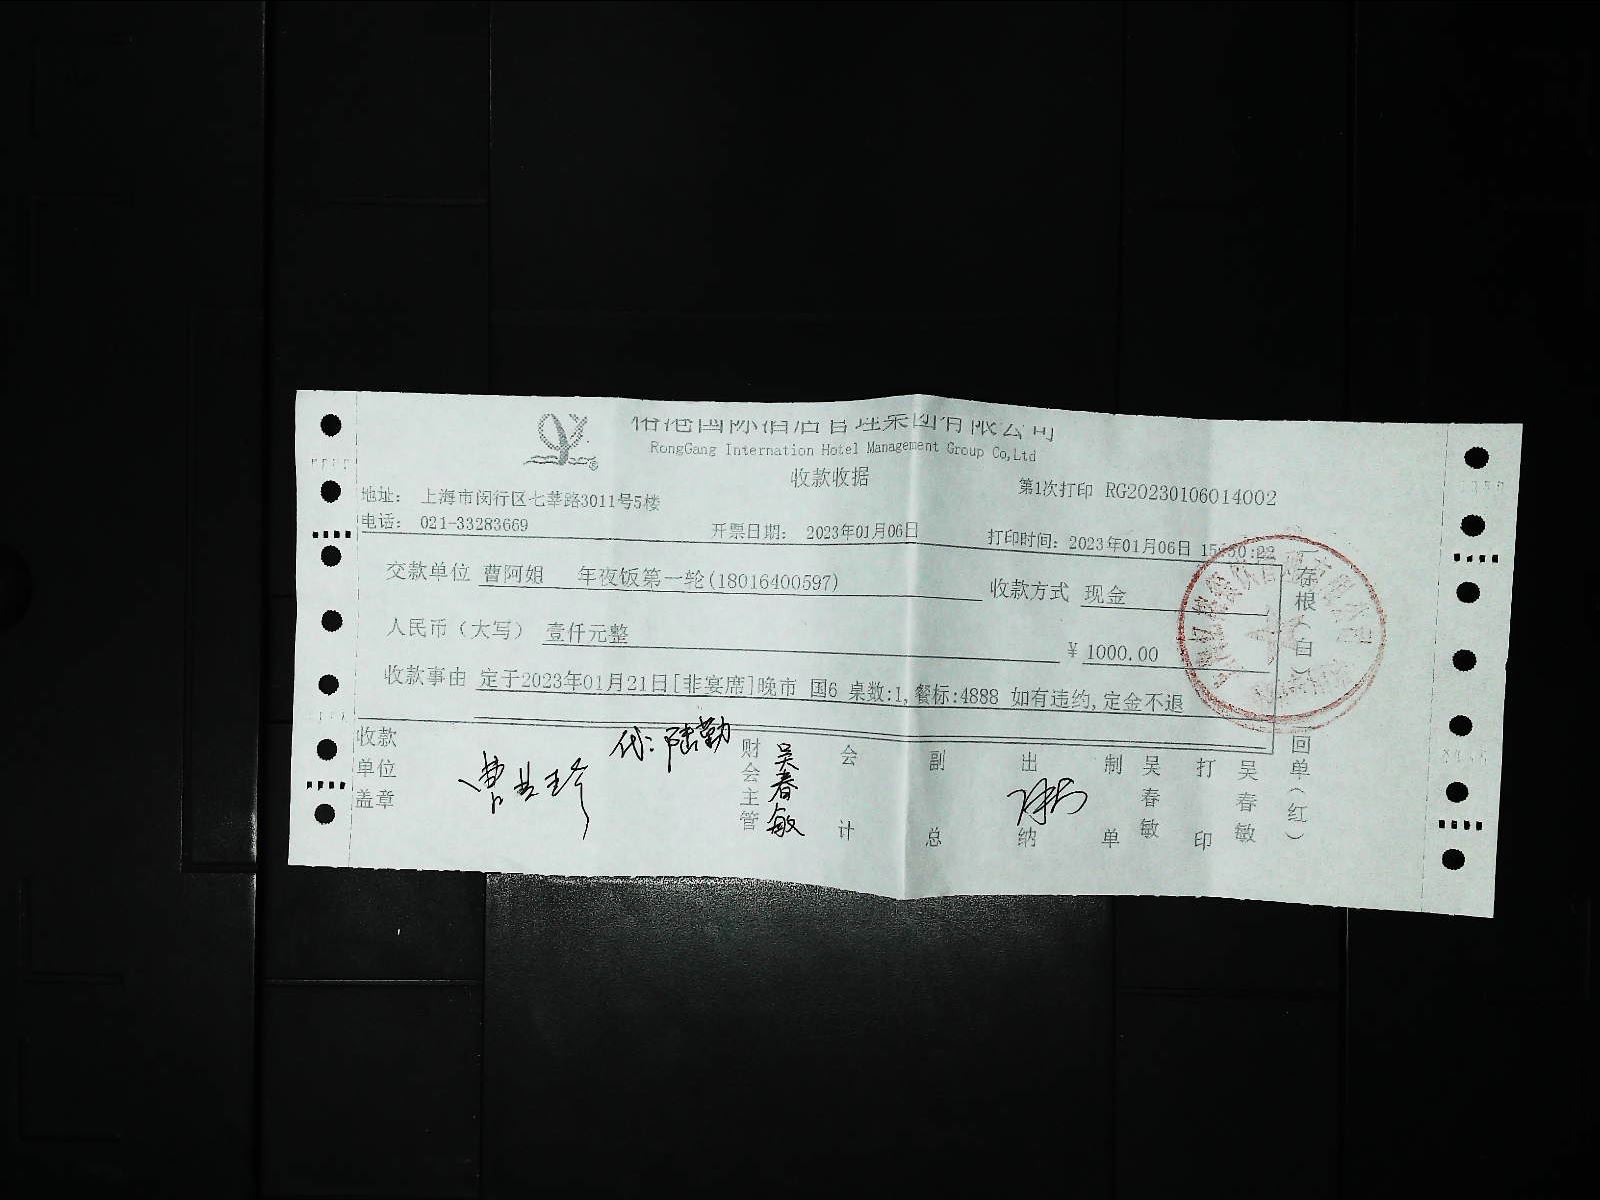 榕港国际酒店管理集团有限公司
RongGang Internation Hotel Management Group Co,Ltd
收款收据
第1次打印 RG20230106014002
地址: 上海市闵行区七莘路3011号5楼
电话: 021-33283669
开票日期: 2023年01月06日
打印时间: 2023年01月06日
交款单位 曹阿姐 年夜饭第一轮(18016400597)
收款方式 现金
人民币(大写) 壹仟元整
¥ 1000.00
收款事由 定于2023年01月21日[非宴席]晚市 国6 桌数:1,餐标:4888 如有违约,定金不退
存根(白)
回单(红)
收款单位盖章
代:陆勤
财会主管 吴春敏
会计
副总
出纳
制单 吴春敏
打印 吴春敏